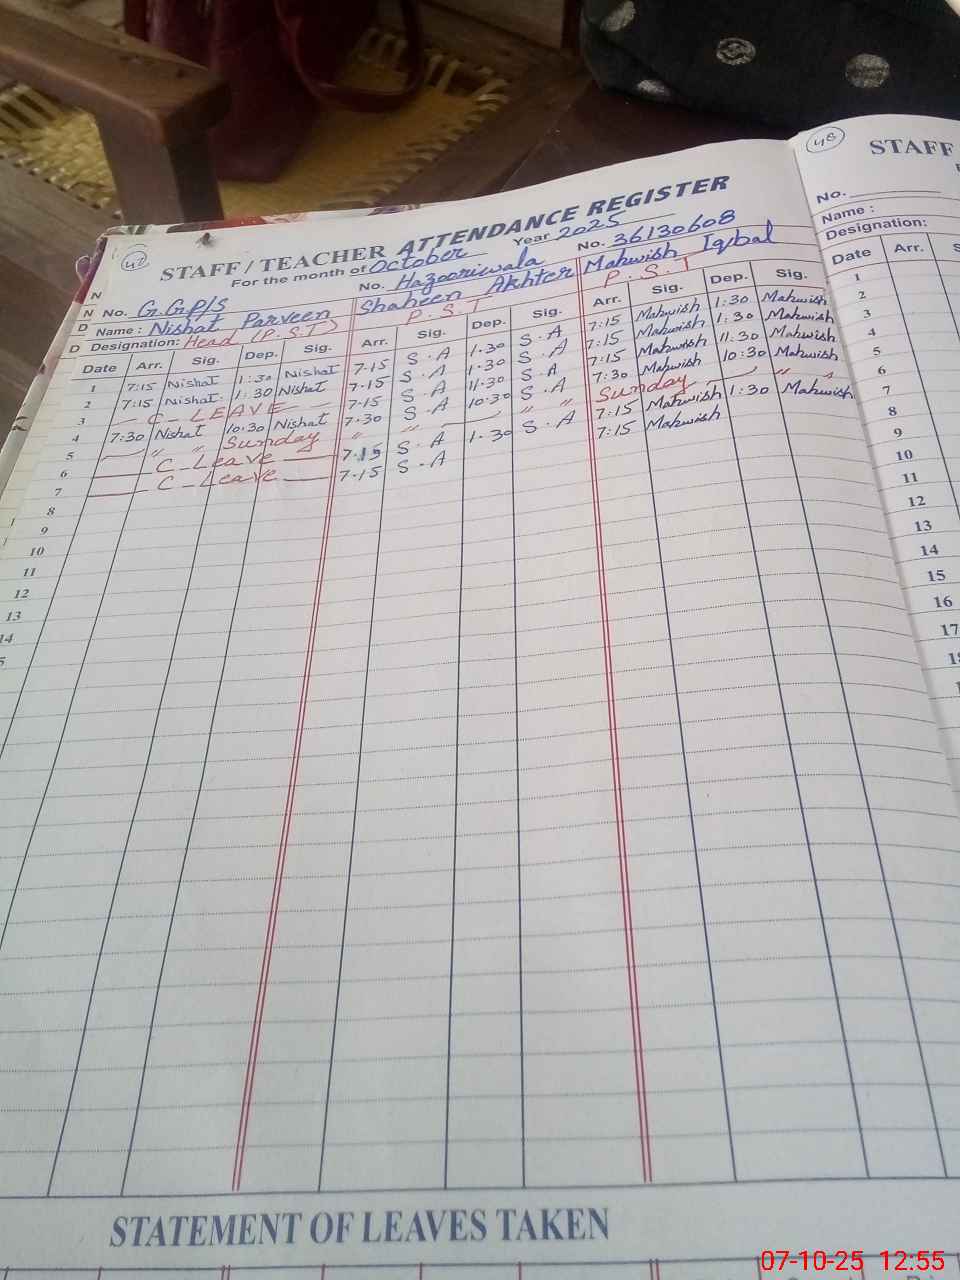 42
STAFF / TEACHER ATTENDANCE REGISTER
For the month of October Year 2025
No. G.G.P/S No. Hazooriwala No. 36130608
Name : Nishat Parveen Shaheen Akhter Mahwish Iqbal
Designation: Head (P.S.T) P.S.T P.S.T
Date Arr. Sig. Dep. Sig. Arr. Sig. Dep. Sig. Arr. Sig. Dep. Sig.
1 7:15 Nishat 1:30 Nishat 7.15 S.A 1.30 S.A 7:15 Mahwish 1:30 Mahwish
2 7:15 Nishat 1:30 Nishat 7.15 S.A 1.30 S.A 7:15 Mahwish 1:30 Mahwish
3 C_LEAVE 7.15 S.A 11.30 S.A 7:15 Mahwish 11:30 Mahwish
4 7:30 Nishat 10:30 Nishat 7.30 S.A 10.30 S.A 7:30 Mahwish 10:30 Mahwish
5 " " Sunday " " " " Sunday "
6 C_Leave 7.15 S.A 1.30 S.A 7:15 Mahwish 1:30 Mahwish
7 C_Leave 7.15 S.A 7:15 Mahwish
8
9
10
11
12
13
14
STATEMENT OF LEAVES TAKEN
48
STAFF
No.
Name :
Designation:
Date Arr.
1
2
3
4
5
6
7
8
9
10
11
12
13
14
15
16
17
07-10-25 12:55